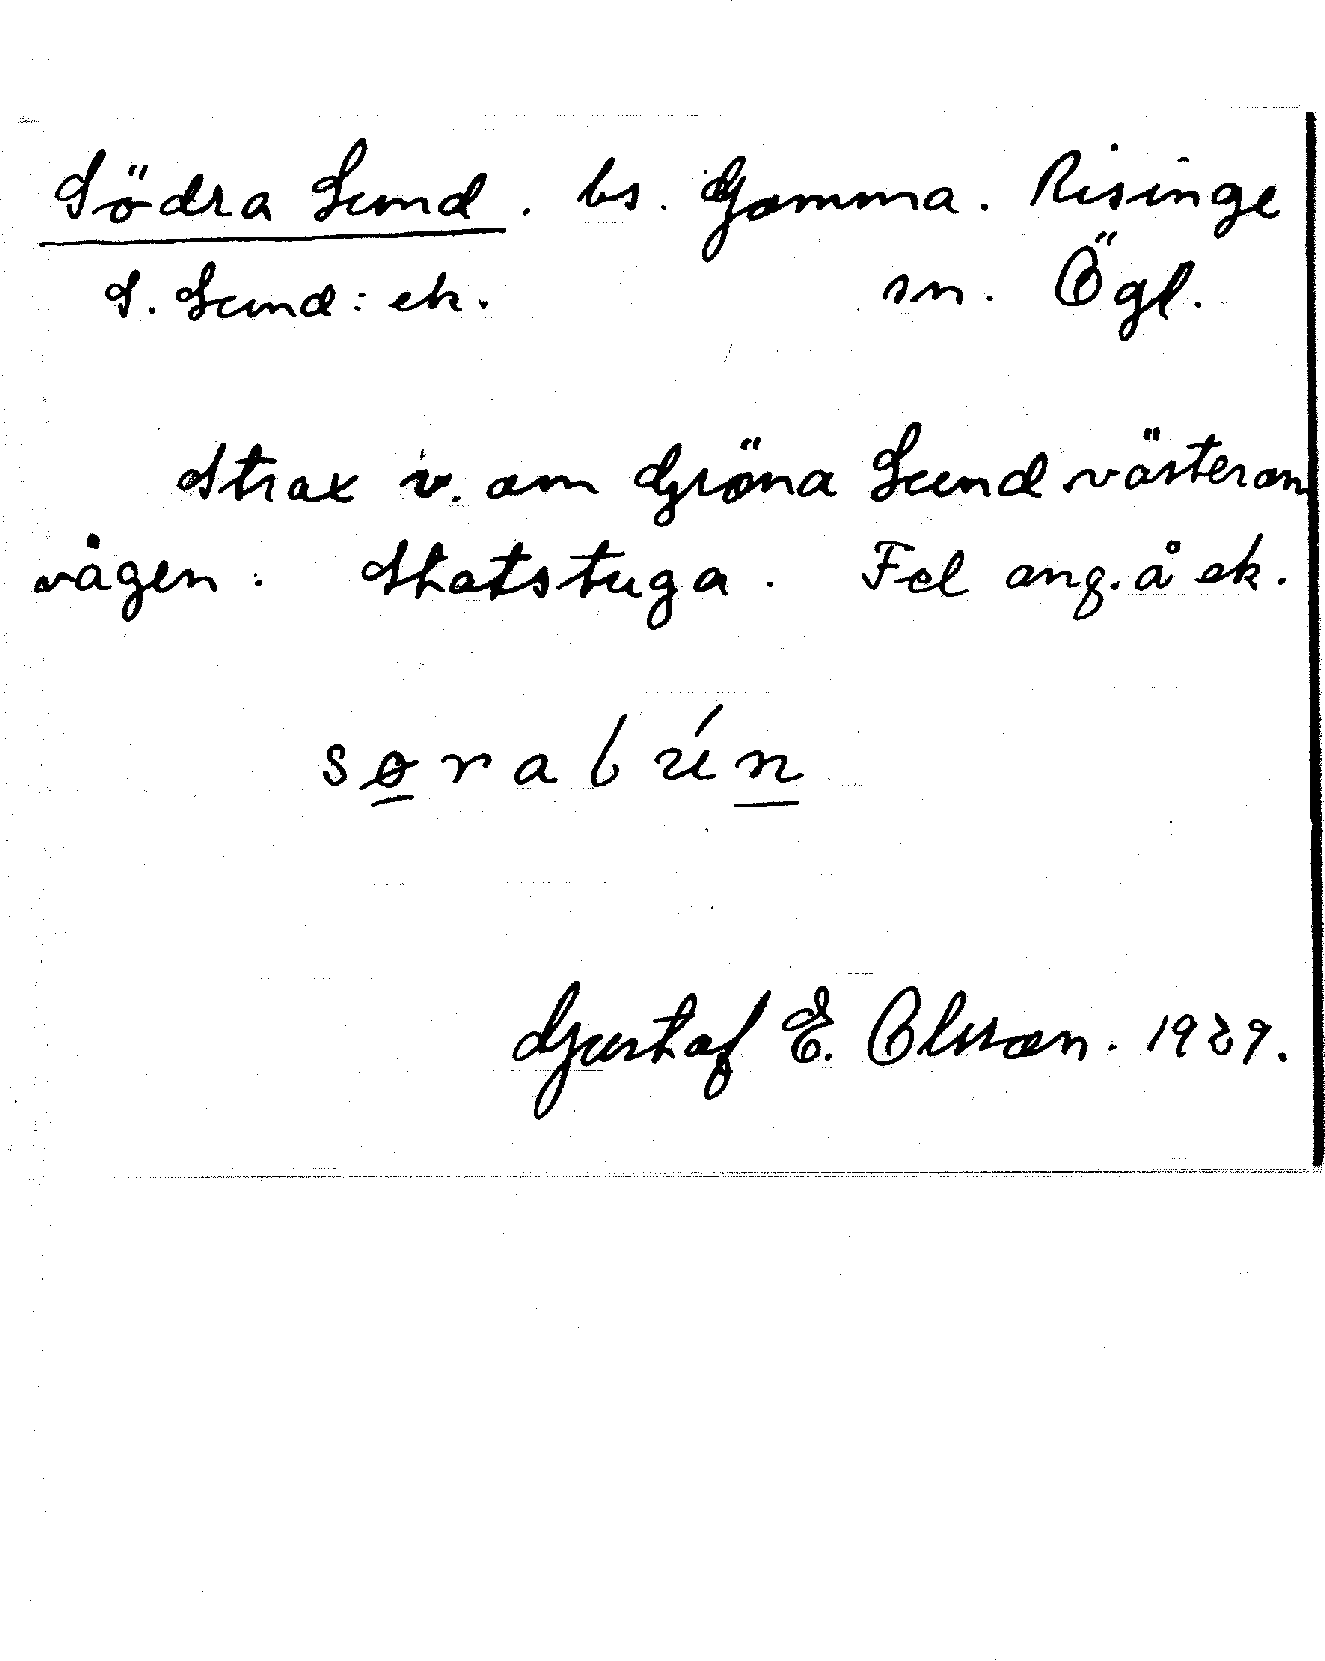 Södra Lund. bs. Gomma. Risinge
S. Lund: ek. sn. Ögl.
Strax v. om Gröna Lund västerom
vägen. Statstuga. Fel ang. å ek.
sø̱ralúṉ
Gustaf E. Olsson. 1929.